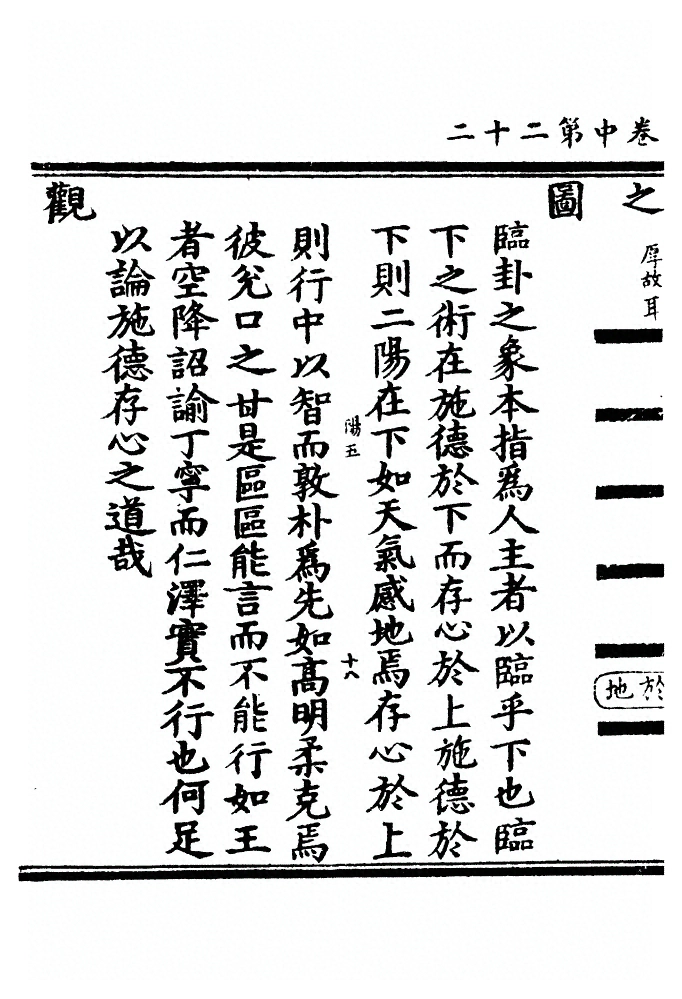 卷中第二十二
之
厚故耳
於地
圖
臨卦之象本指爲人主者以臨乎下也臨
下之術在施德於下而存心於上施德於
下則二陽在下如天氣感地焉存心於上
陽五
十八
則行中以智而敦朴爲先如高明柔克焉
彼兊口之甘是區區能言而不能行如王
者空降詔諭丁寧而仁澤實不行也何足
以論施德存心之道哉
觀